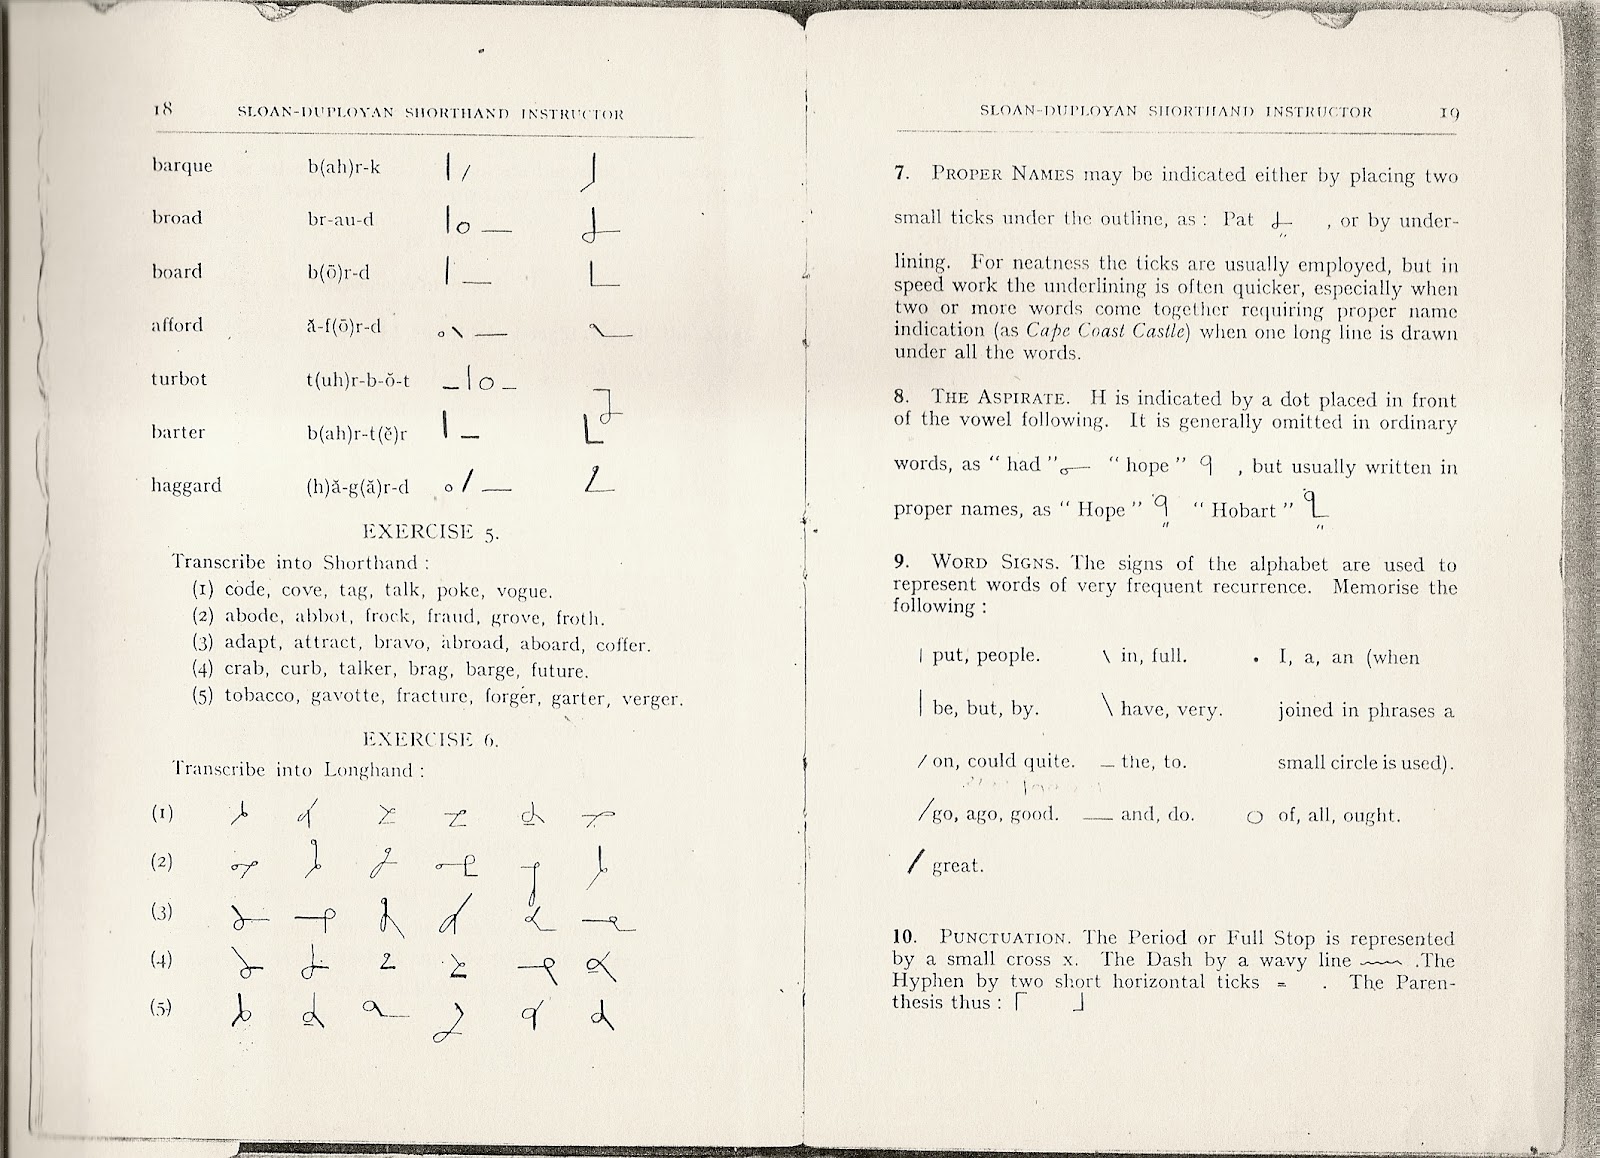 18 SLOAN-DUPLOYAN SHORTHAND INSTRUCTOR
barque b(ah)r-k
broad br-au-d
board b(ō)r-d
afford ă-f(ō)r-d
turbot t(uh)r-b-ŏ-t
barter b(ah)r-t(ĕ)r
haggard (h)ă-g(ă)r-d
EXERCISE 5.
Transcribe into Shorthand :
(1) code, cove, tag, talk, poke, vogue.
(2) abode, abbot, frock, fraud, grove, froth.
(3) adapt, attract, bravo, abroad, aboard, coffer.
(4) crab, curb, talker, brag, barge, future.
(5) tobacco, gavotte, fracture, forger, garter, verger.
EXERCISE 6.
Transcribe into Longhand :
(1)
(2)
(3)
(4)
(5)
SLOAN-DUPLOYAN SHORTHAND INSTRUCTOR 19
7. PROPER NAMES may be indicated either by placing two
small ticks under the outline, as : Pat , or by under-
lining. For neatness the ticks are usually employed, but in
speed work the underlining is often quicker, especially when
two or more words come together requiring proper name
indication (as Cape Coast Castle) when one long line is drawn
under all the words.
8. THE ASPIRATE. H is indicated by a dot placed in front
of the vowel following. It is generally omitted in ordinary
words, as “ had ” “ hope ” , but usually written in
proper names, as “ Hope ” “ Hobart ”
9. WORD SIGNS. The signs of the alphabet are used to
represent words of very frequent recurrence. Memorise the
following :
put, people. in, full. I, a, an (when
be, but, by. have, very. joined in phrases a
on, could quite. the, to. small circle is used).
go, ago, good. and, do. of, all, ought.
great.
10. PUNCTUATION. The Period or Full Stop is represented
by a small cross x. The Dash by a wavy line . The
Hyphen by two short horizontal ticks = . The Paren-
thesis thus :